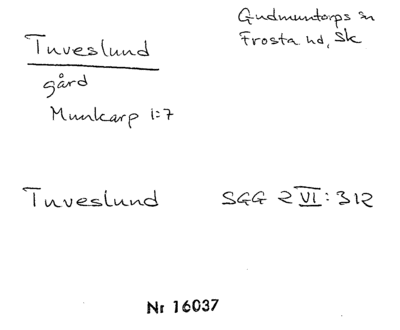 Tuveslund
Gudmuntorps sn
Frosta hd, Sk
gård
Munkarp 1:7
Tuveslund SGG 2 VI: 312
Nr 16037